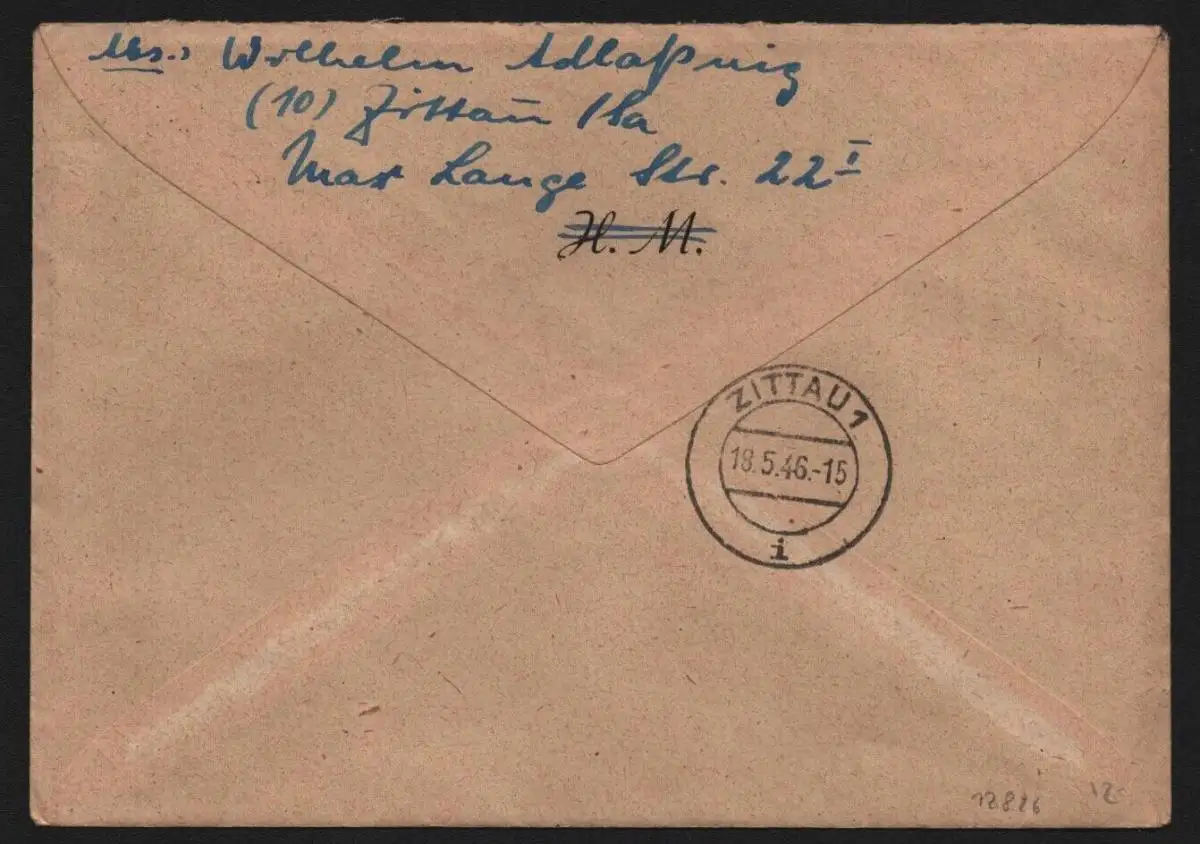 Abs.: Wilhelm Adlaßnig
(10) Zittau /Sa
Max Lange Str. 22 I
H. M.
ZITTAU 1
18.5.46.-15
i
12